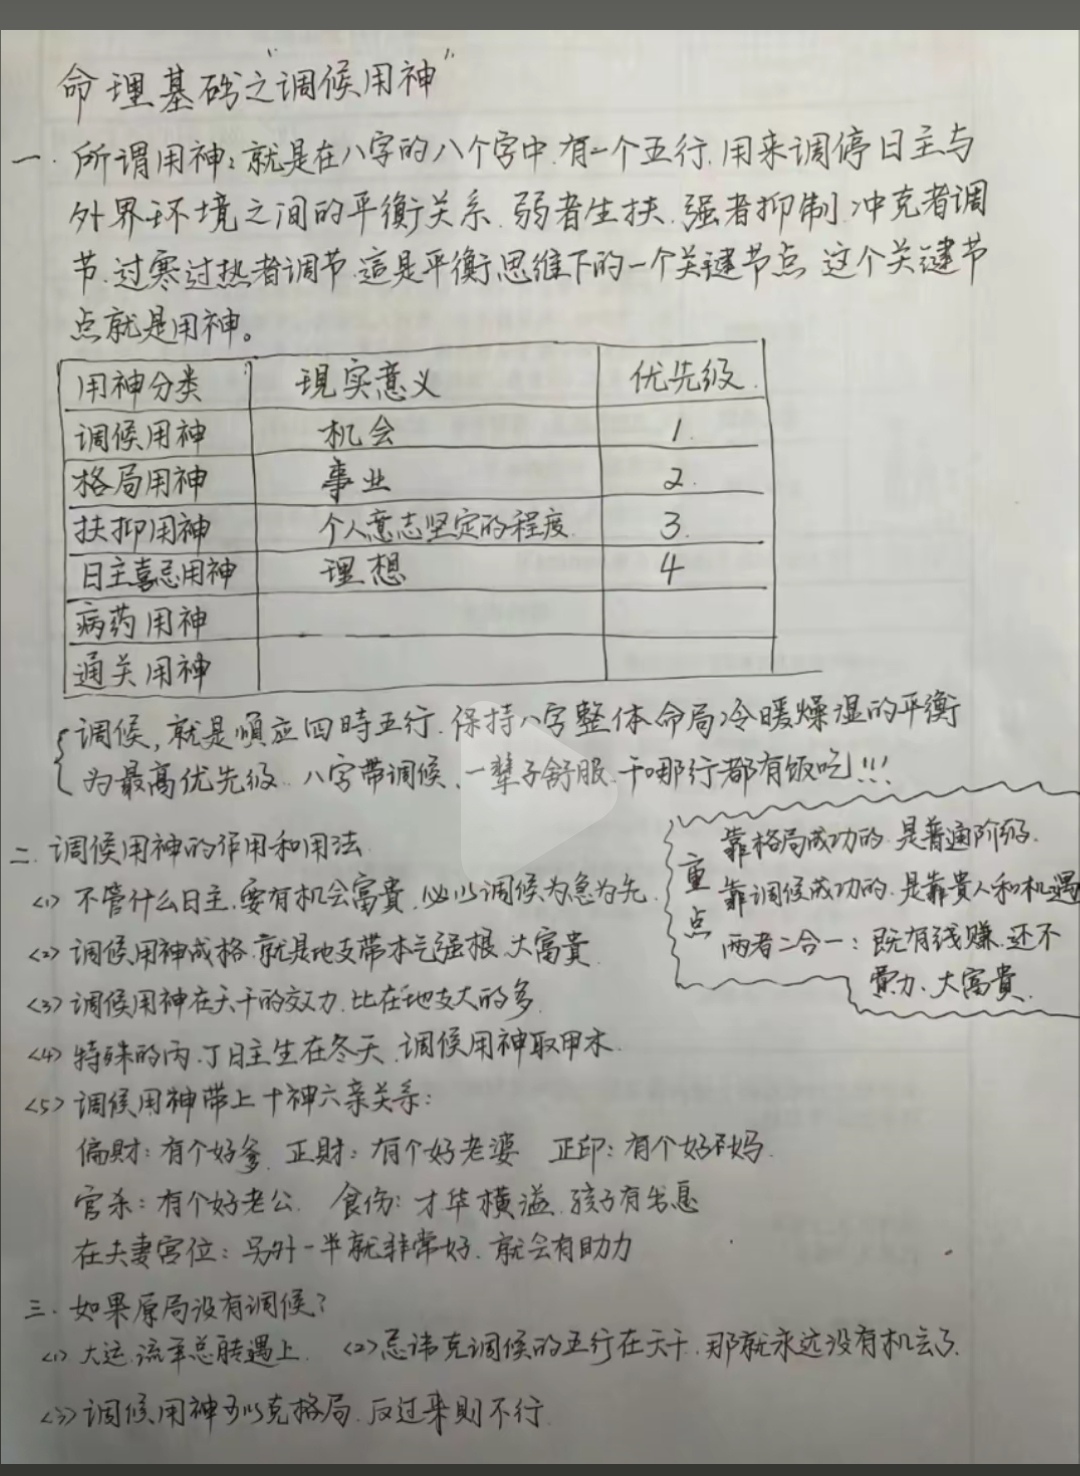 命理基础之"调候用神"
一. 所谓用神:就是在八字的八个字中.有一个五行.用来调停日主与
外界环境之间的平衡关系.弱者生扶.强者抑制.冲克者调
节.过寒过热者调节.這是平衡思维下的一个关键节点 这个关键节
点就是用神。
用神分类 現实意义 优先级.
调候用神 机会 1.
格局用神 事业 2.
扶抑用神 个人意志坚定的程度. 3.
日主喜忌用神 理想 4
病药用神
通关用神
调候,就是順应四時五行.保持八字整体命局冷暖燥湿的平衡
为最高优先级..八字带调候、一辈子舒服.干哪行都有饭吃!!!
二.调候用神的作用和用法
<1> 不管什么日主.要有机会富貴.必以调候为急为先.
<2> 调候用神成格.就是地支带本气强根、大富貴.
<3> 调候用神在天干的效力.比在地支大的多.
<4> 特殊的丙、丁日主生在冬天、调候用神取甲木.
<5> 调候用神带上十神六亲关系:
偏財:有个好爹. 正財:有个好老婆 正印:有个好妈.
官杀:有个好老公. 食伤:才华横溢.孩子有出息
在夫妻宫位:另外一半就非常好.就会有助力
重点
靠格局成功的.是普通阶级.
靠调候成功的.是靠貴人和机遇
两者二合一:既有钱赚.还不
费力、大富貴.
三.如果原局没有调候?
<1> 大运.流年总能遇上. <2>忌讳克调候的五行在天干.那就永远没有机会了.
<3>调候用神可以克格局.反过来则不行.